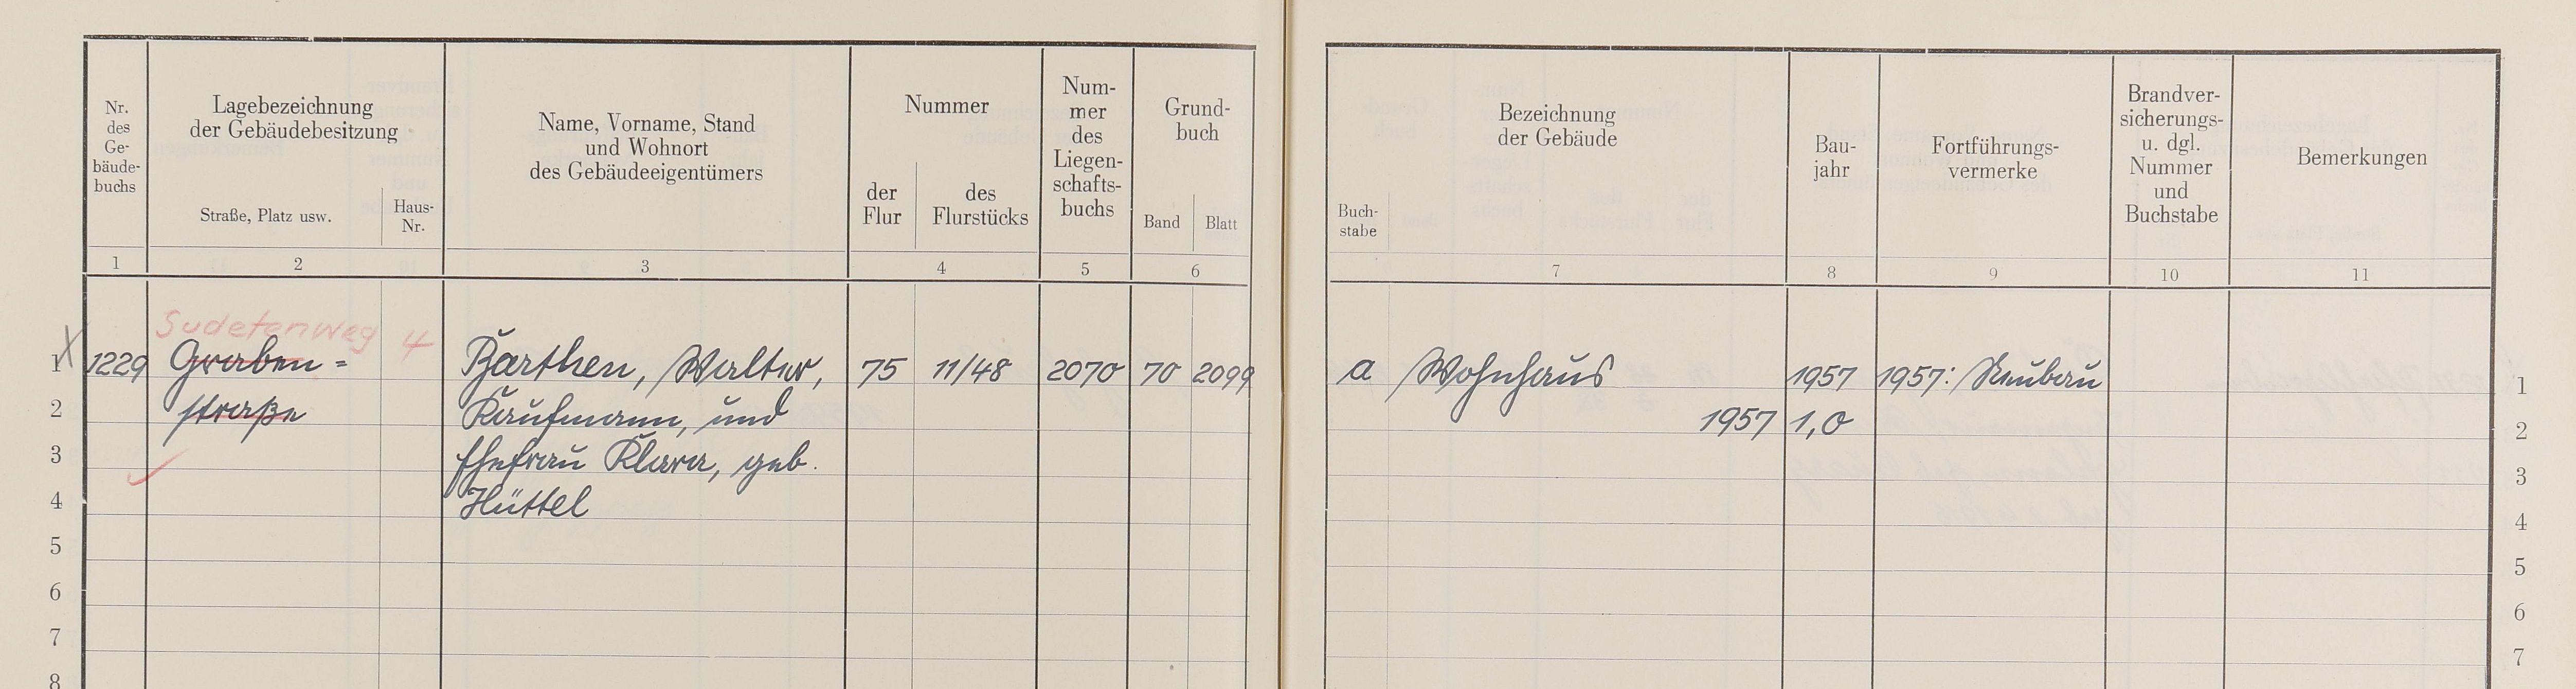 Nr.
des
Ge-
bäude-
buchs
Lagebezeichnung
der Gebäudebesitzung
Straße, Platz usw.
Haus-
Nr.
Name, Vorname, Stand
und Wohnort
des Gebäudeeigentümers
Nummer
der
Flur
des
Flurstücks
Num-
mer
des
Liegen-
schafts-
buchs
Grund-
buch
Band
Blatt
Bezeichnung
der Gebäude
Buch-
stabe
Bau-
jahr
Fortführungs-
vermerke
Brandver-
sicherungs-
u. dgl.
Nummer
und
Buchstabe
Bemerkungen
1 2 3 4 5 6 7 8 9 10 11
Sudetenweg 4
1 X 1229 Graben= Barthen, Walter, 75 11/48 2070 70 2099 a Wohnhaus 1957 1957: Neubau 1
2 straße Kaufmann, und 1957 1,0 2
3 Ehefrau Klara, geb. 3
4 Hüttel 4
5 5
6 6
7 7
8